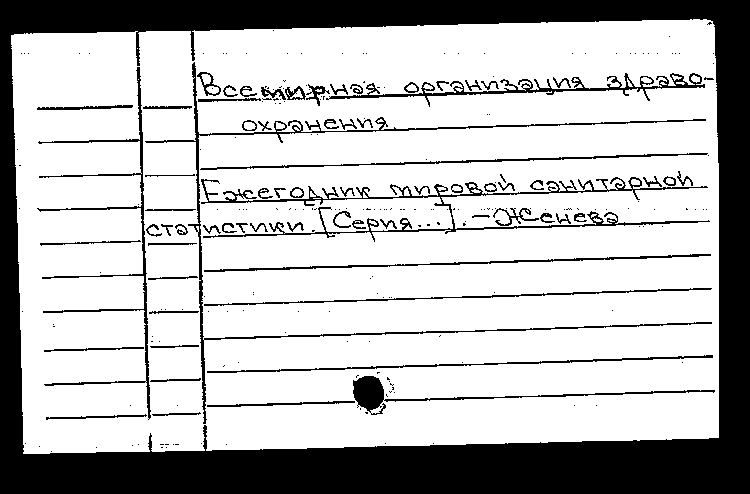 Всемирная организация здраво-
охранения.
Ежегодник мировой санитарной
статистики. [Серия...]. - Женева